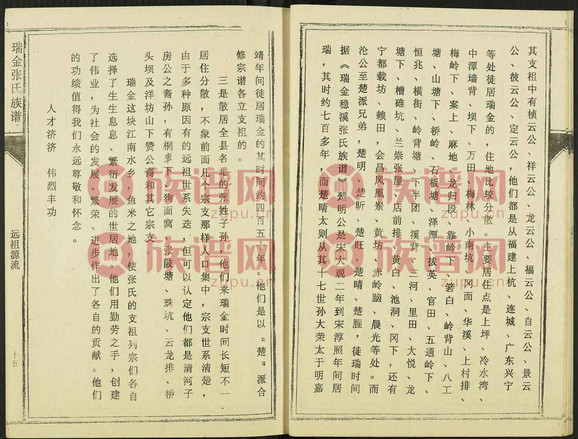 其支祖中有桢云公、祥云公、龙云公、福云公、自云公、景云
公、彼云公、定云公，他们都是从福建上杭、连城、广东兴宁
等处徒居瑞金的，住地比较分散。主要居住点是上坪、冷水湾、
中潭墙背、坝下、万田、梅林、小南坑、冈面、华溪、上村排、
梅岭下、案上、麻地、龙归段、靠岭下、箬白、岭背山、八工
塘下、山塘下、桥岭、石板塘下、泽潭、拔英、官田、五通岭下、
恒兆、横街、岭背塘下、下半团、溪背、三河、里田、大悦、龙
塘下、糟碓坑、兰崇张屋、店前排、黄白、池洞、冈下，还有
宁都载坊、赖田、会昌凤凰寨、黄坊、赤岭脑、晨光等处。而
沦公至楚派兄弟，楚明、楚昕、楚旺、楚晴、楚雁，徒瑞时间
据《瑞金稳溪张氏族谱》楚明公是宋大观二年到宋淳照年间居
瑞，其时约七百多年，而楚晴太则从其十七世孙大荣太于明嘉
靖年间徒居瑞金的其时间约四百五十年。他们是以“楚”派合
修宗谱各立支祖的。
三是散居全县各地的张姓子孙，他们来瑞金时间长短不一
居住分散，不象前面几个宗支那样人口集中，宗支世系清楚，
由于多种原因有的远祖世系失迭，但可以认定他们都是清河子
房公之裔孙，有桐拿下、狗面窝、张陂塘、珠坑、云龙排、桥
头坝及洋坊山下赞公裔和其它宗支。
瑞金这块江南水乡、鱼米之地，使张氏的支祖列宗们各自
选择了生生息息、繁衍发展的世居地。他们用勤劳之手，创建
了伟业，为社会的发展、繁荣、进步作出了各自的贡献。他们
的功绩值得我们永远尊敬和怀念。
人才济济 伟烈丰功
瑞金张氏族谱
远祖源流
十五
族谱网
zupu.cn
族谱网
zupu.cn